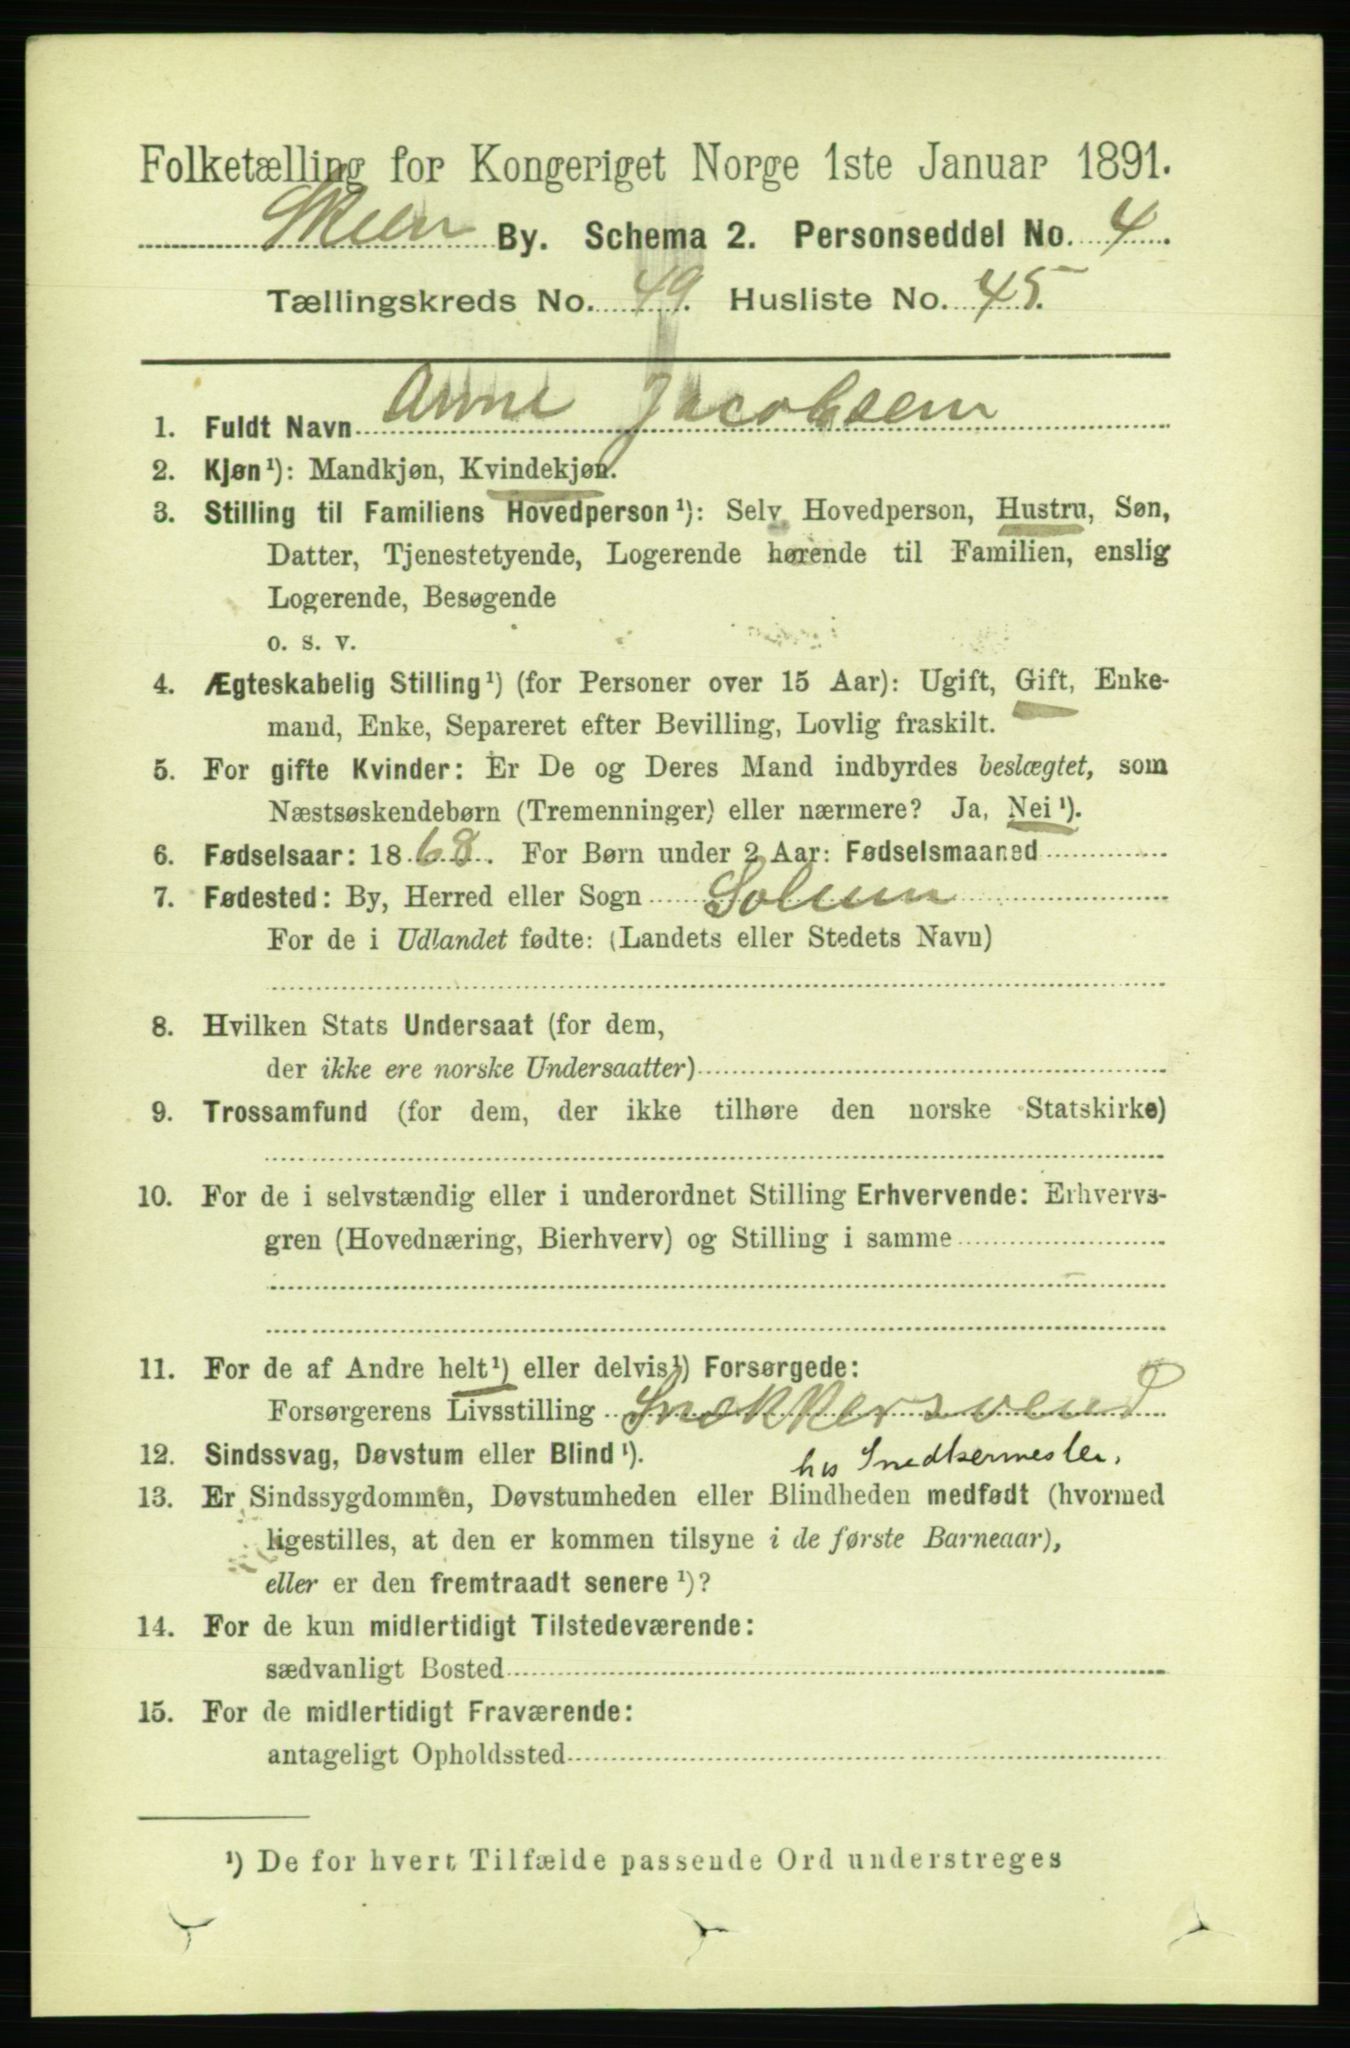 Folketælling for Kongeriget Norge 1ste Januar 1891.
Skien By. Schema 2. Personseddel No. 4.
Tællingskreds No. 49. Husliste No. 45.
1. Fuldt Navn Anne Jacobsen
2. Kjøn¹): Mandkjøn, Kvindekjøn.
3. Stilling til Familiens Hovedperson¹): Selv Hovedperson, Hustru, Søn,
Datter, Tjenestetyende, Logerende hørende til Familien, enslig
Logerende, Besøgende
o. s. v.
4. Ægteskabelig Stilling¹) (for Personer over 15 Aar): Ugift, Gift, Enke-
mand, Enke, Separeret efter Bevilling, Lovlig fraskilt.
5. For gifte Kvinder: Er De og Deres Mand indbyrdes beslægtet, som
Næstsøskendebørn (Tremenninger) eller nærmere? Ja, Nei¹).
6. Fødselsaar: 1868. For Børn under 2 Aar: Fødselsmaaned
7. Fødested: By, Herred eller Sogn Solum
For de i Udlandet fødte: (Landets eller Stedets Navn)
8. Hvilken Stats Undersaat (for dem,
der ikke ere norske Undersaatter)
9. Trossamfund (for dem, der ikke tilhøre den norske Statskirke)
10. For de i selvstændig eller i underordnet Stilling Erhvervende: Erhvervs-
gren (Hovednæring, Bierhverv) og Stilling i samme
11. For de af Andre helt¹) eller delvis¹) Forsørgede:
Forsørgerens Livsstilling Snekkersvend
12. Sindssvag, Døvstum eller Blind¹). hos Snedkermester.
13. Er Sindssygdommen, Døvstumheden eller Blindheden medfødt (hvormed
ligestilles, at den er kommen tilsyne i de første Barneaar),
eller er den fremtraadt senere¹)?
14. For de kun midlertidigt Tilstedeværende:
sædvanligt Bosted
15. For de midlertidigt Fraværende:
antageligt Opholdssted
¹) De for hvert Tilfælde passende Ord understreges